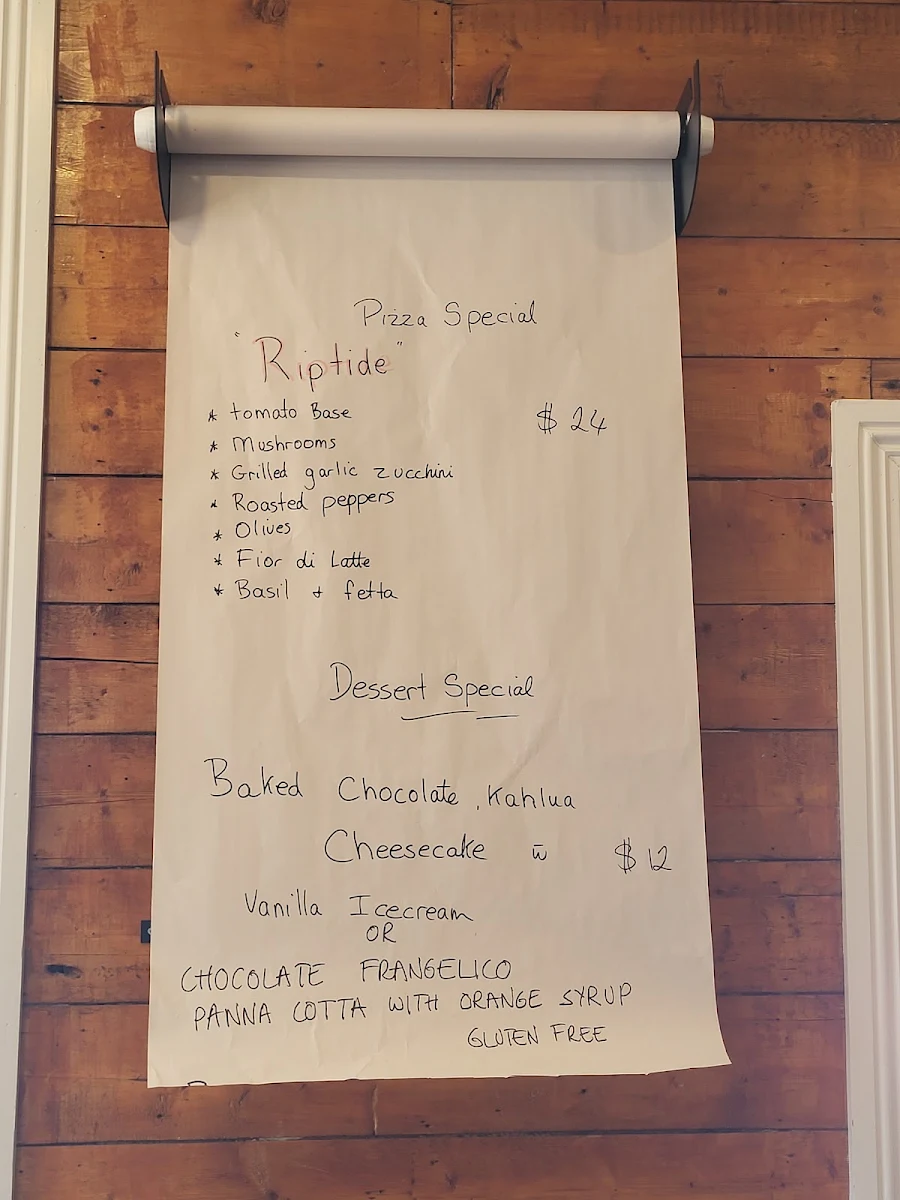 Pizza Special
"Riptide"
* tomato Base
$ 24
* Mushrooms
* Grilled garlic zucchini
* Roasted peppers
* Olives
* Fior di Latte
* Basil + fetta
Dessert Special
Baked Chocolate, Kahlua
Cheesecake w̄ $ 12
Vanilla Icecream
OR
CHOCOLATE FRANGELICO
PANNA COTTA WITH ORANGE SYRUP
GLUTEN FREE